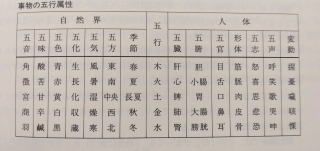 事物の五行属性
自然界 五行 人体
五音 五味 五色 五化 五気 五方 季節 五臓 五腑 五官 形体 五志 五声 変動
角 酸 青 生 風 東 春 木 肝 胆 目 筋 怒 呼 握
徴 苦 赤 長 暑 南 夏 火 心 小腸 舌 脈 喜 笑 憂
宮 甘 黄 化 湿 中央 長夏 土 脾 胃 口 肉 思 歌
商 辛 白 収 燥 西 秋 金 肺 大腸 鼻 皮 悲 哭 咳
羽 鹹 黒 蔵 寒 北 冬 水 腎 膀胱 耳 骨 恐 呻 慄